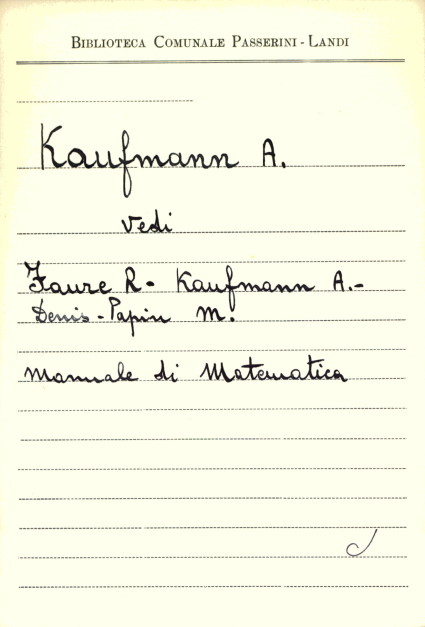 BIBLIOTECA COMUNALE PASSERINI - LANDI
Kaufmann A.
Vedi
Faure R- Kaufmann A.-
Denis-Papin M.
Manuale di Matematica